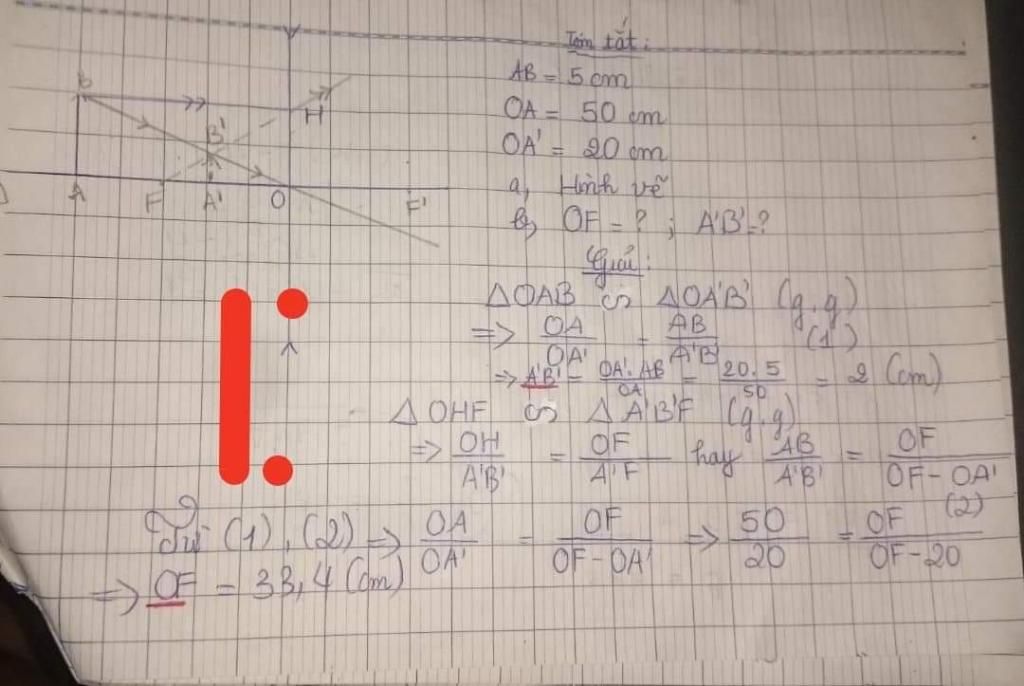 Tóm tắt:
AB = 5 cm
OA = 50 cm
OA' = 20 cm
a, Hình vẽ
b, OF = ? ; A'B' = ?
B
H
B'
A F A' O F'
Giải:
△OAB ∽ △OA'B' (g.g)
=> OA/OA' = AB/A'B' (1)
=> A'B' = OA'.AB/OA = 20.5/50 = 2 (cm)
△OHF ∽ △A'B'F (g.g)
=> OH/A'B' = OF/A'F hay AB/A'B' = OF/OF-OA' (2)
Từ (1), (2) => OA/OA' = OF/OF-OA' => 50/20 = OF/OF-20
=> OF = 33,4 (cm)